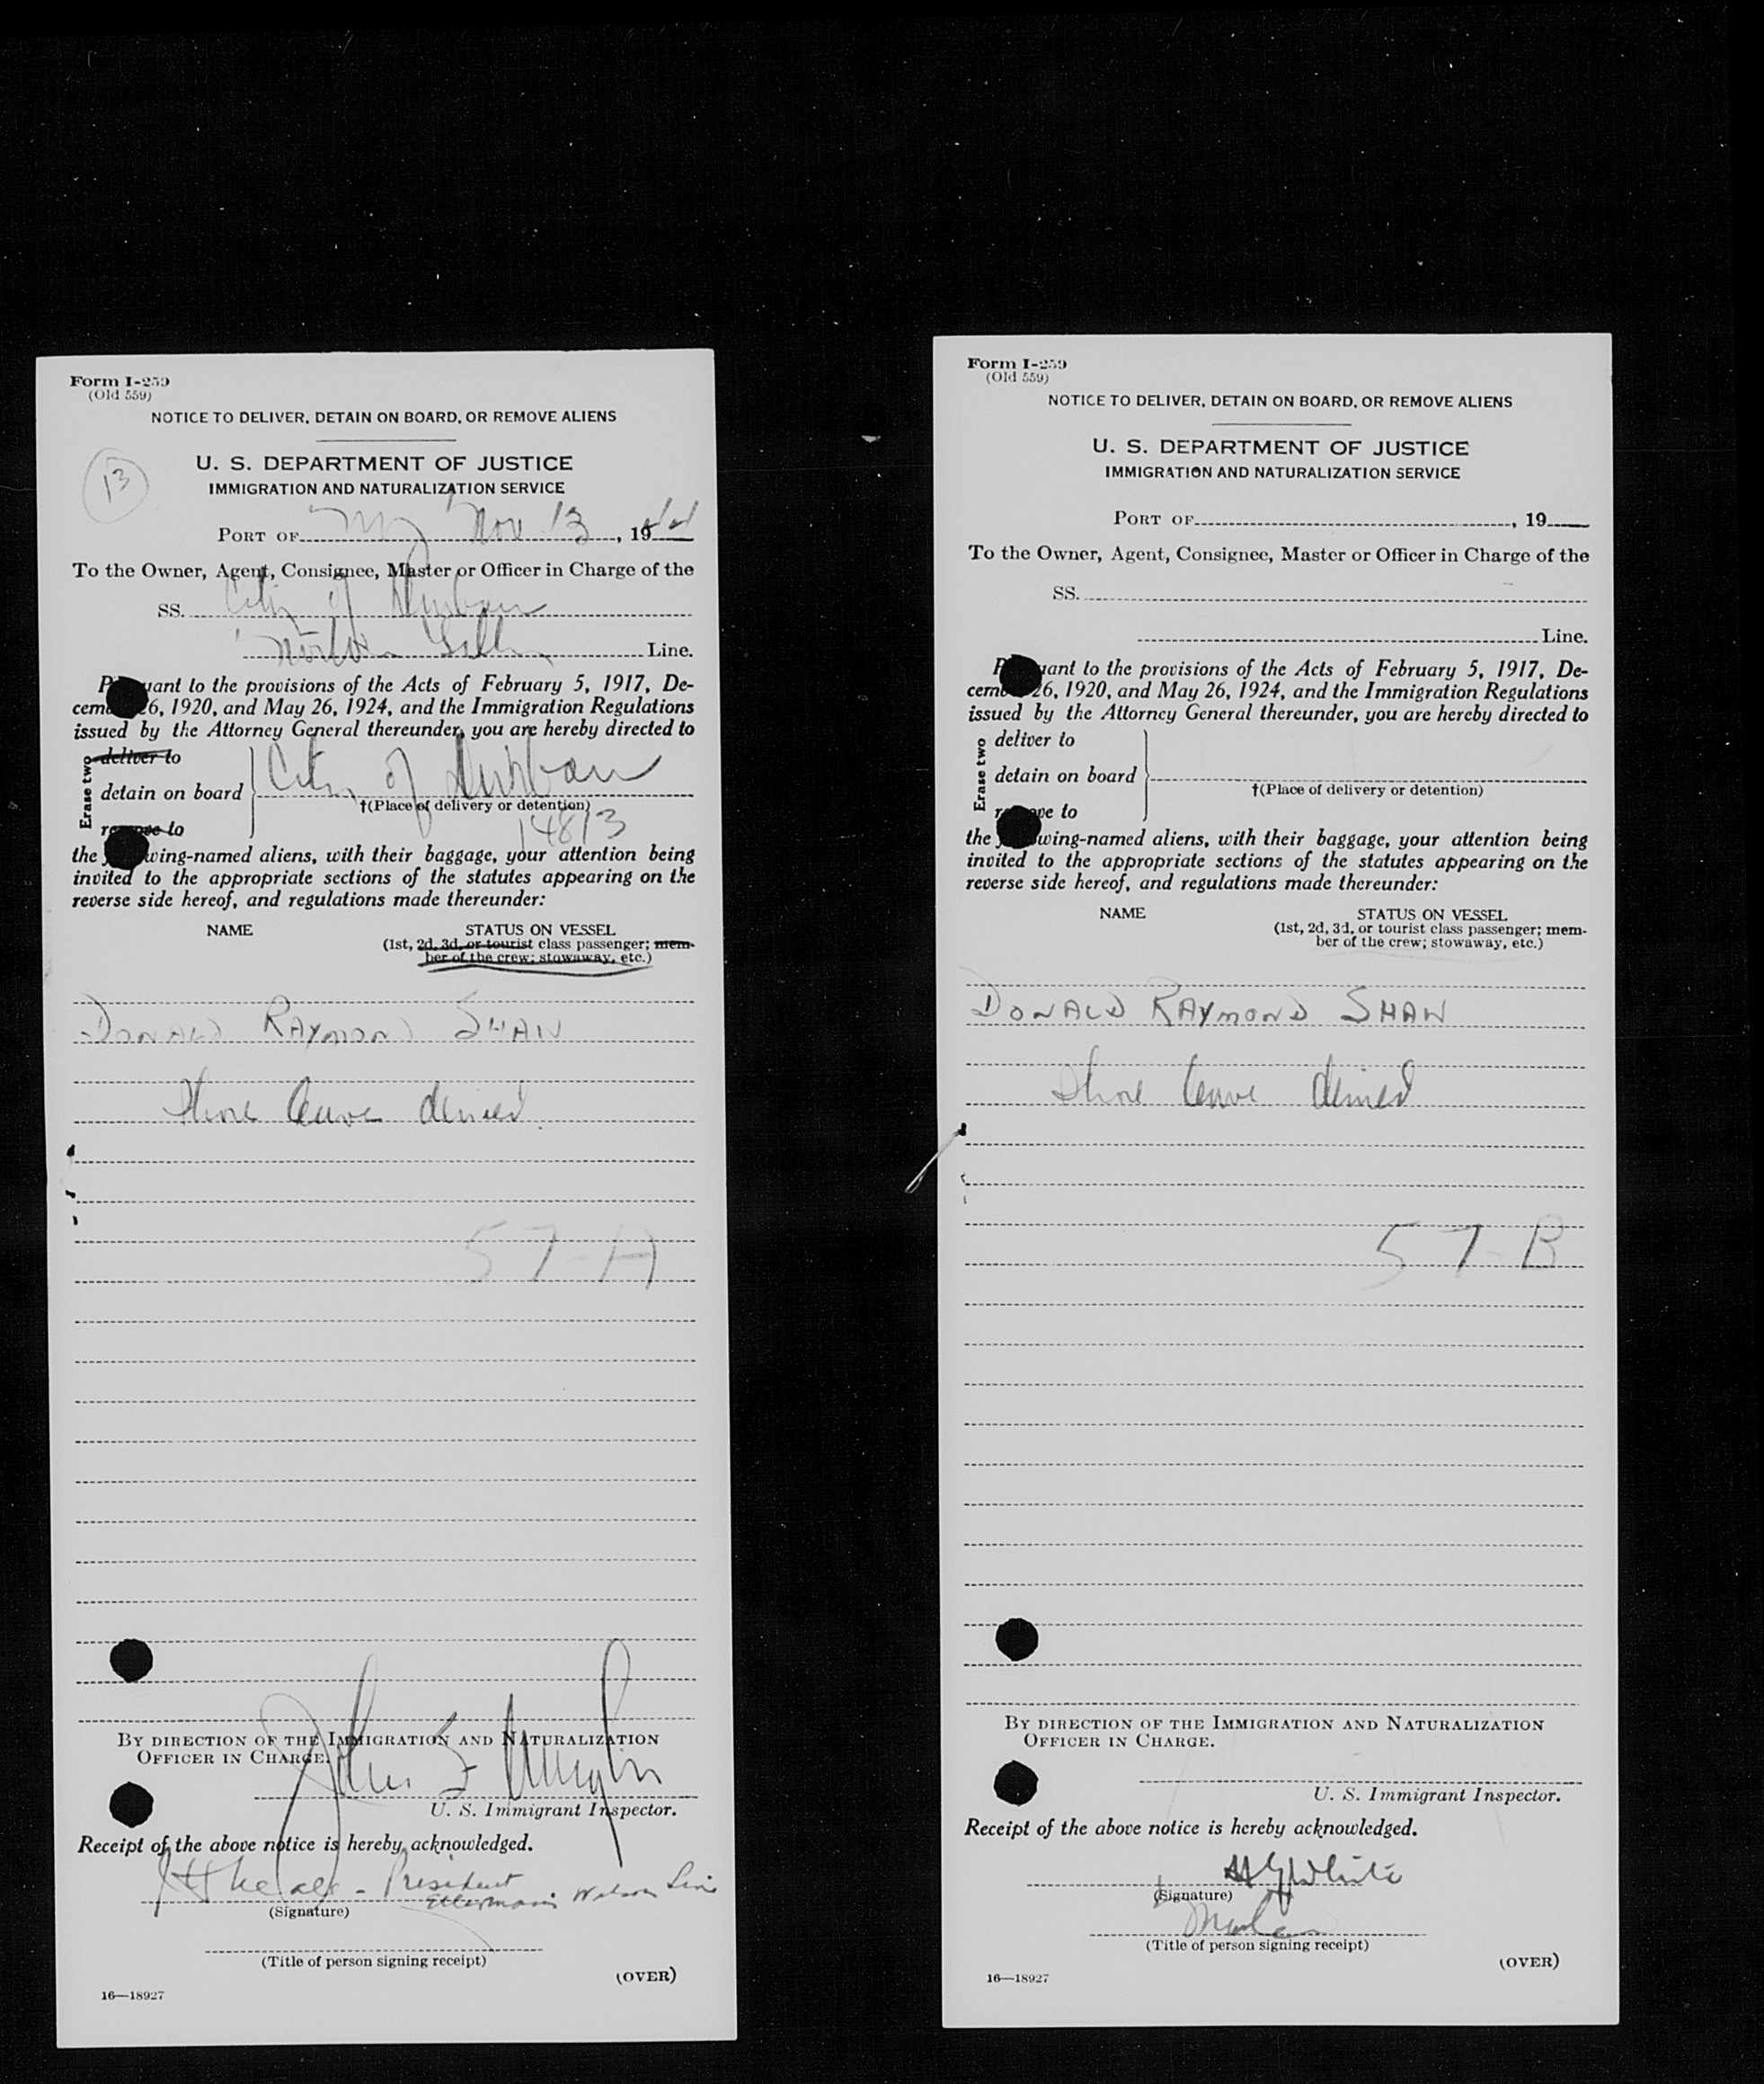 Form I-259
(Old 559)
NOTICE TO DELIVER, DETAIN ON BOARD, OR REMOVE ALIENS
13
U. S. DEPARTMENT OF JUSTICE
IMMIGRATION AND NATURALIZATION SERVICE
PORT OF NY Nov 13, 1944
To the Owner, Agent, Consignee, Master or Officer in Charge of the
SS. City of Durban
Norton Lilly Line.
Pursuant to the provisions of the Acts of February 5, 1917, De-
cember 26, 1920, and May 26, 1924, and the Immigration Regulations
issued by the Attorney General thereunder, you are hereby directed to
Erase two
deliver to
detain on board City of Durban
†(Place of delivery or detention)
remove to
14813
the following-named aliens, with their baggage, your attention being
invited to the appropriate sections of the statutes appearing on the
reverse side hereof, and regulations made thereunder:
NAME STATUS ON VESSEL
(1st, 2d, 3d, or tourist class passenger; mem-
ber of the crew; stowaway, etc.)
DONALD RAYMOND SHAW
Shore leave denied
57-A
BY DIRECTION OF THE IMMIGRATION AND NATURALIZATION
OFFICER IN CHARGE.
John F
U. S. Immigrant Inspector.
Receipt of the above notice is hereby acknowledged.
President
Ellermans Wilson Line
(Signature)
(Title of person signing receipt)
(OVER)
16—18927
Form I-259
(Old 559)
NOTICE TO DELIVER, DETAIN ON BOARD, OR REMOVE ALIENS
U. S. DEPARTMENT OF JUSTICE
IMMIGRATION AND NATURALIZATION SERVICE
PORT OF , 19
To the Owner, Agent, Consignee, Master or Officer in Charge of the
SS.
Line.
Pursuant to the provisions of the Acts of February 5, 1917, De-
cember 26, 1920, and May 26, 1924, and the Immigration Regulations
issued by the Attorney General thereunder, you are hereby directed to
Erase two
deliver to
detain on board
†(Place of delivery or detention)
remove to
the following-named aliens, with their baggage, your attention being
invited to the appropriate sections of the statutes appearing on the
reverse side hereof, and regulations made thereunder:
NAME STATUS ON VESSEL
(1st, 2d, 3d, or tourist class passenger; mem-
ber of the crew; stowaway, etc.)
DONALD RAYMOND SHAW
Shore leave denied
57-B
BY DIRECTION OF THE IMMIGRATION AND NATURALIZATION
OFFICER IN CHARGE.
U. S. Immigrant Inspector.
Receipt of the above notice is hereby acknowledged.
H G White
(Signature)
Master
(Title of person signing receipt)
(OVER)
16—18927